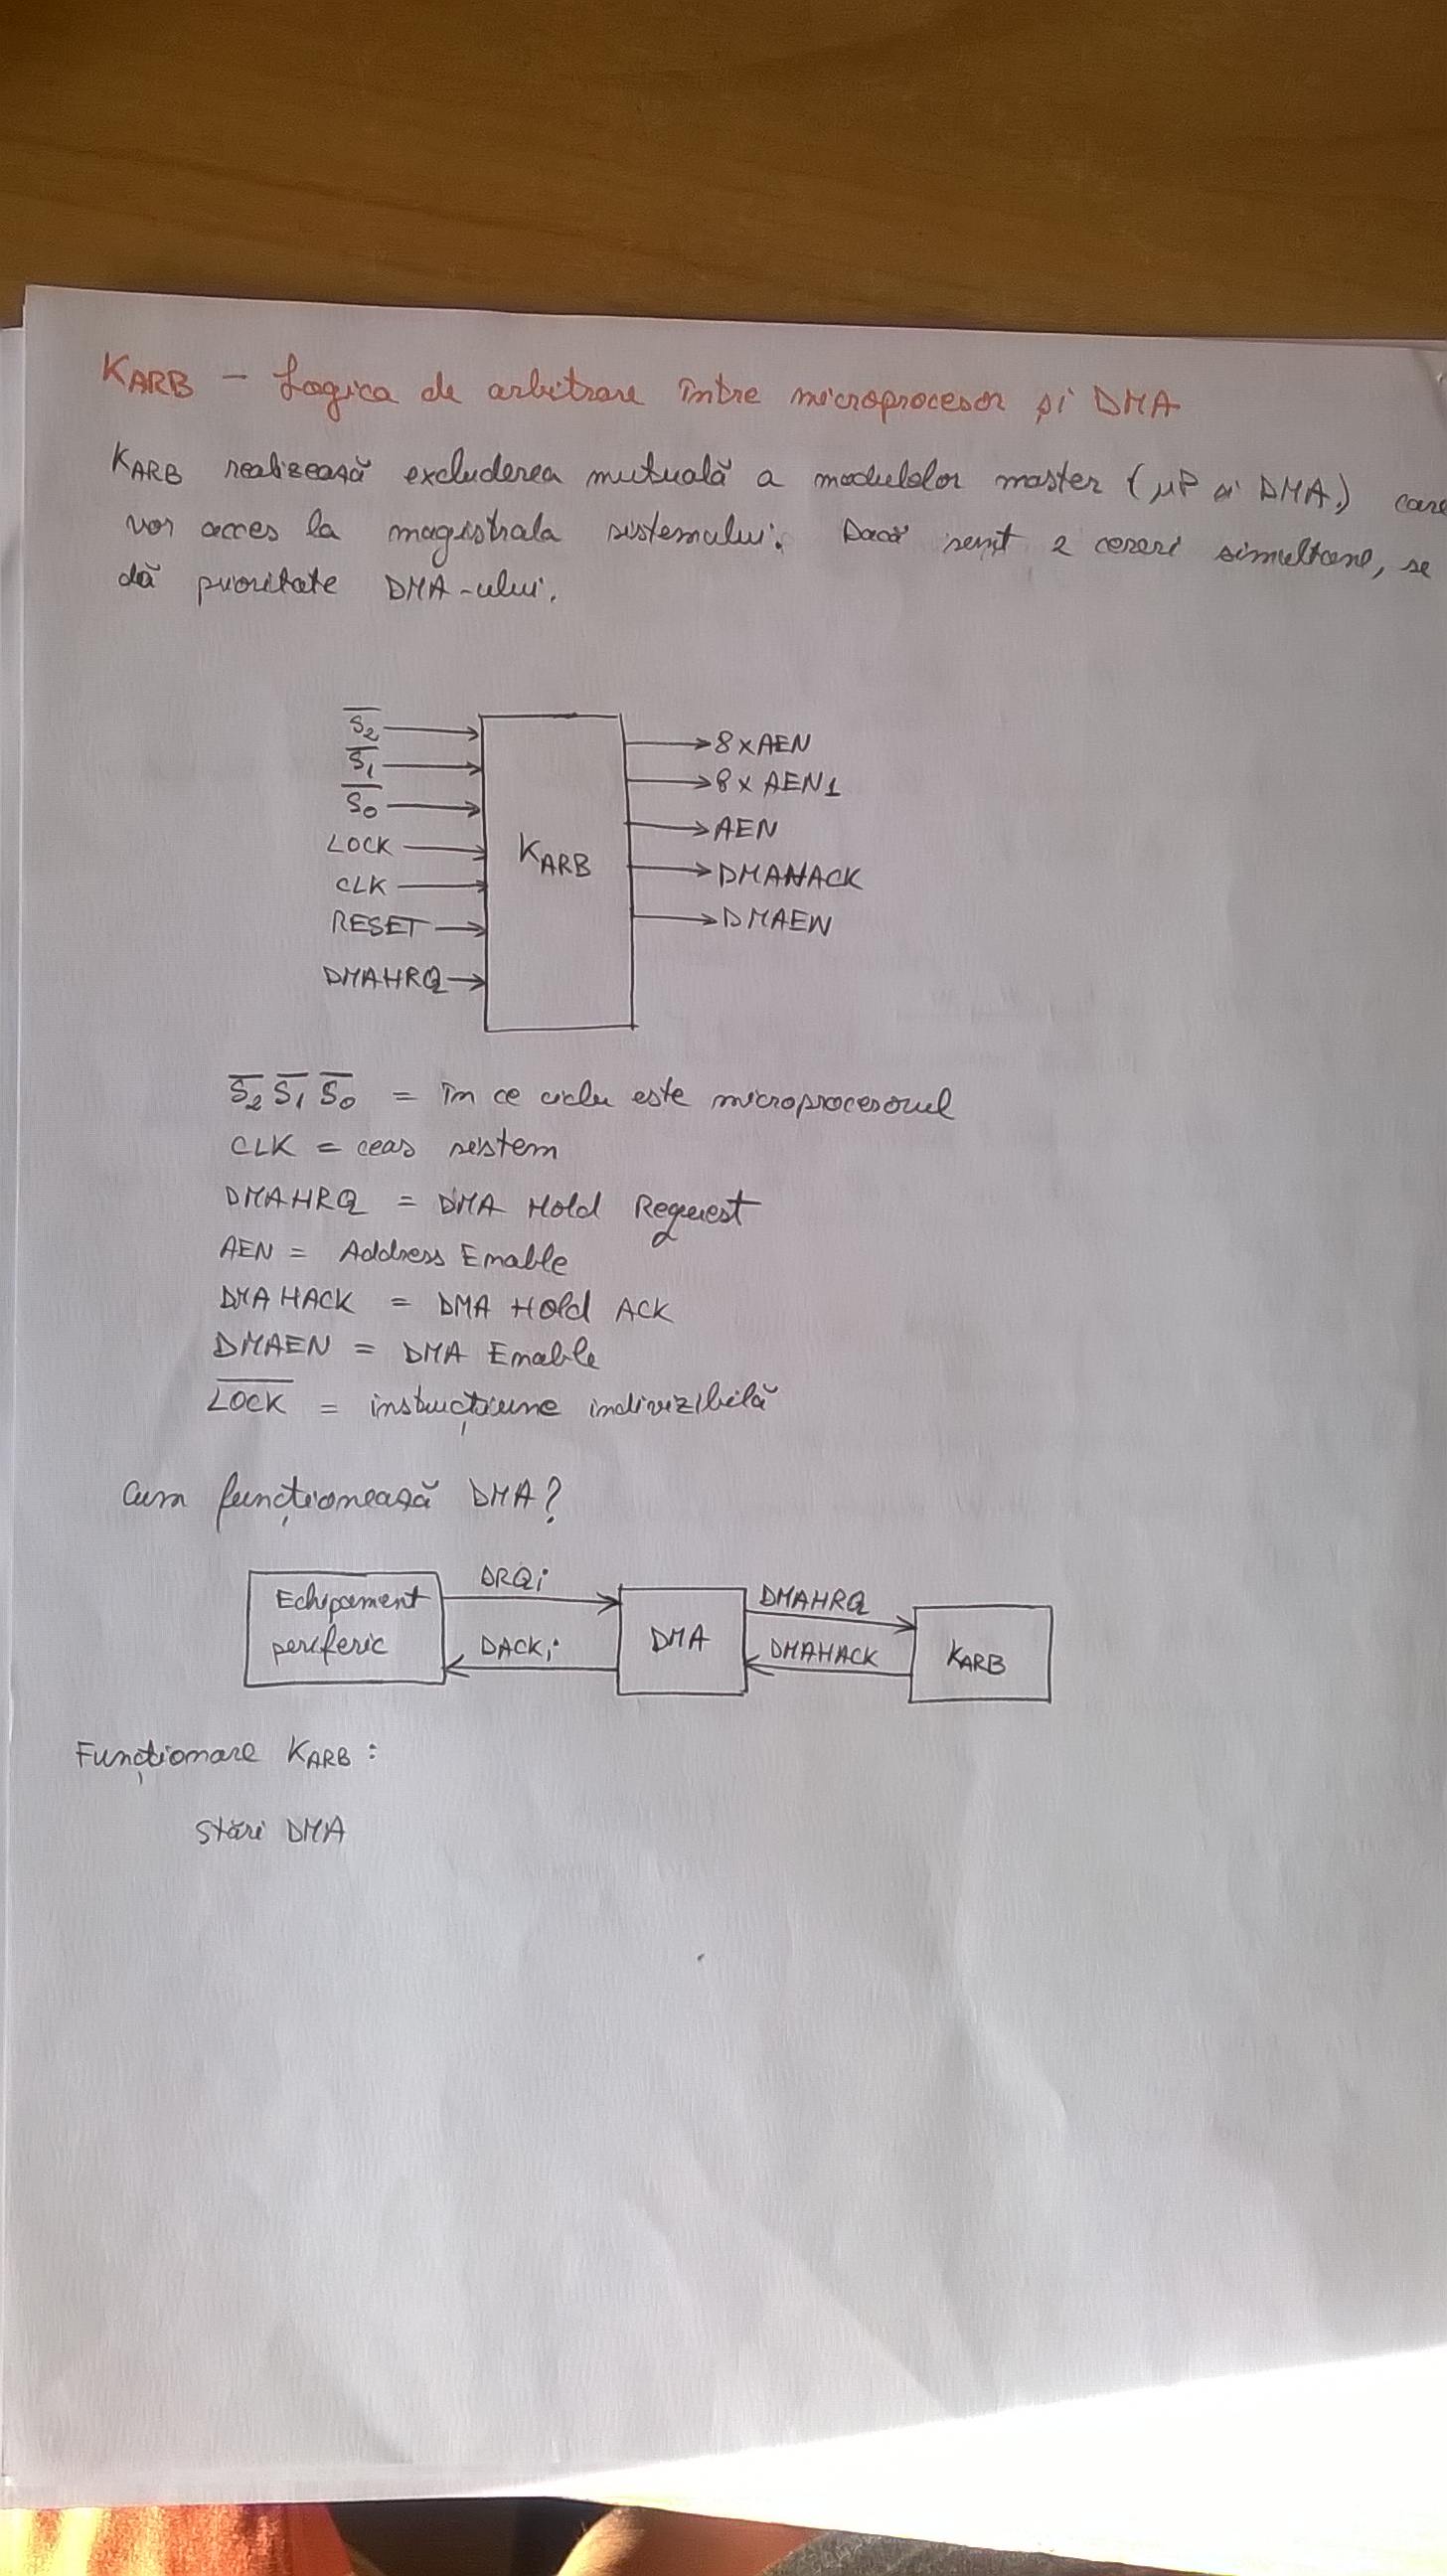 KARB – Logica de arbitrare între microprocesor și DMA
KARB realizează excluderea mutuală a modulelor master (μP și DMA) care
vor acces la magistrala sistemului. Dacă sunt 2 cereri simultane, se
dă prioritate DMA-ului.
S̅2̅
S̅1̅
S̅0̅
LOCK
CLK
RESET
DMAHRQ
KARB
8xAEN
8xAEN1
AEN
DMAHACK
DMAEN
S̅2̅ S̅1̅ S̅0̅ = în ce ciclu este microprocesorul
CLK = ceas sistem
DMAHRQ = DMA Hold Request
AEN = Address Enable
DMAHACK = DMA Hold ACK
DMAEN = DMA Enable
L̅O̅C̅K̅ = instrucțiune indivizibilă
Cum funcționează DMA?
Echipament
periferic
DRQi
DACKi
DMA
DMAHRQ
DMAHACK
KARB
Funcționare KARB:
Stări DMA